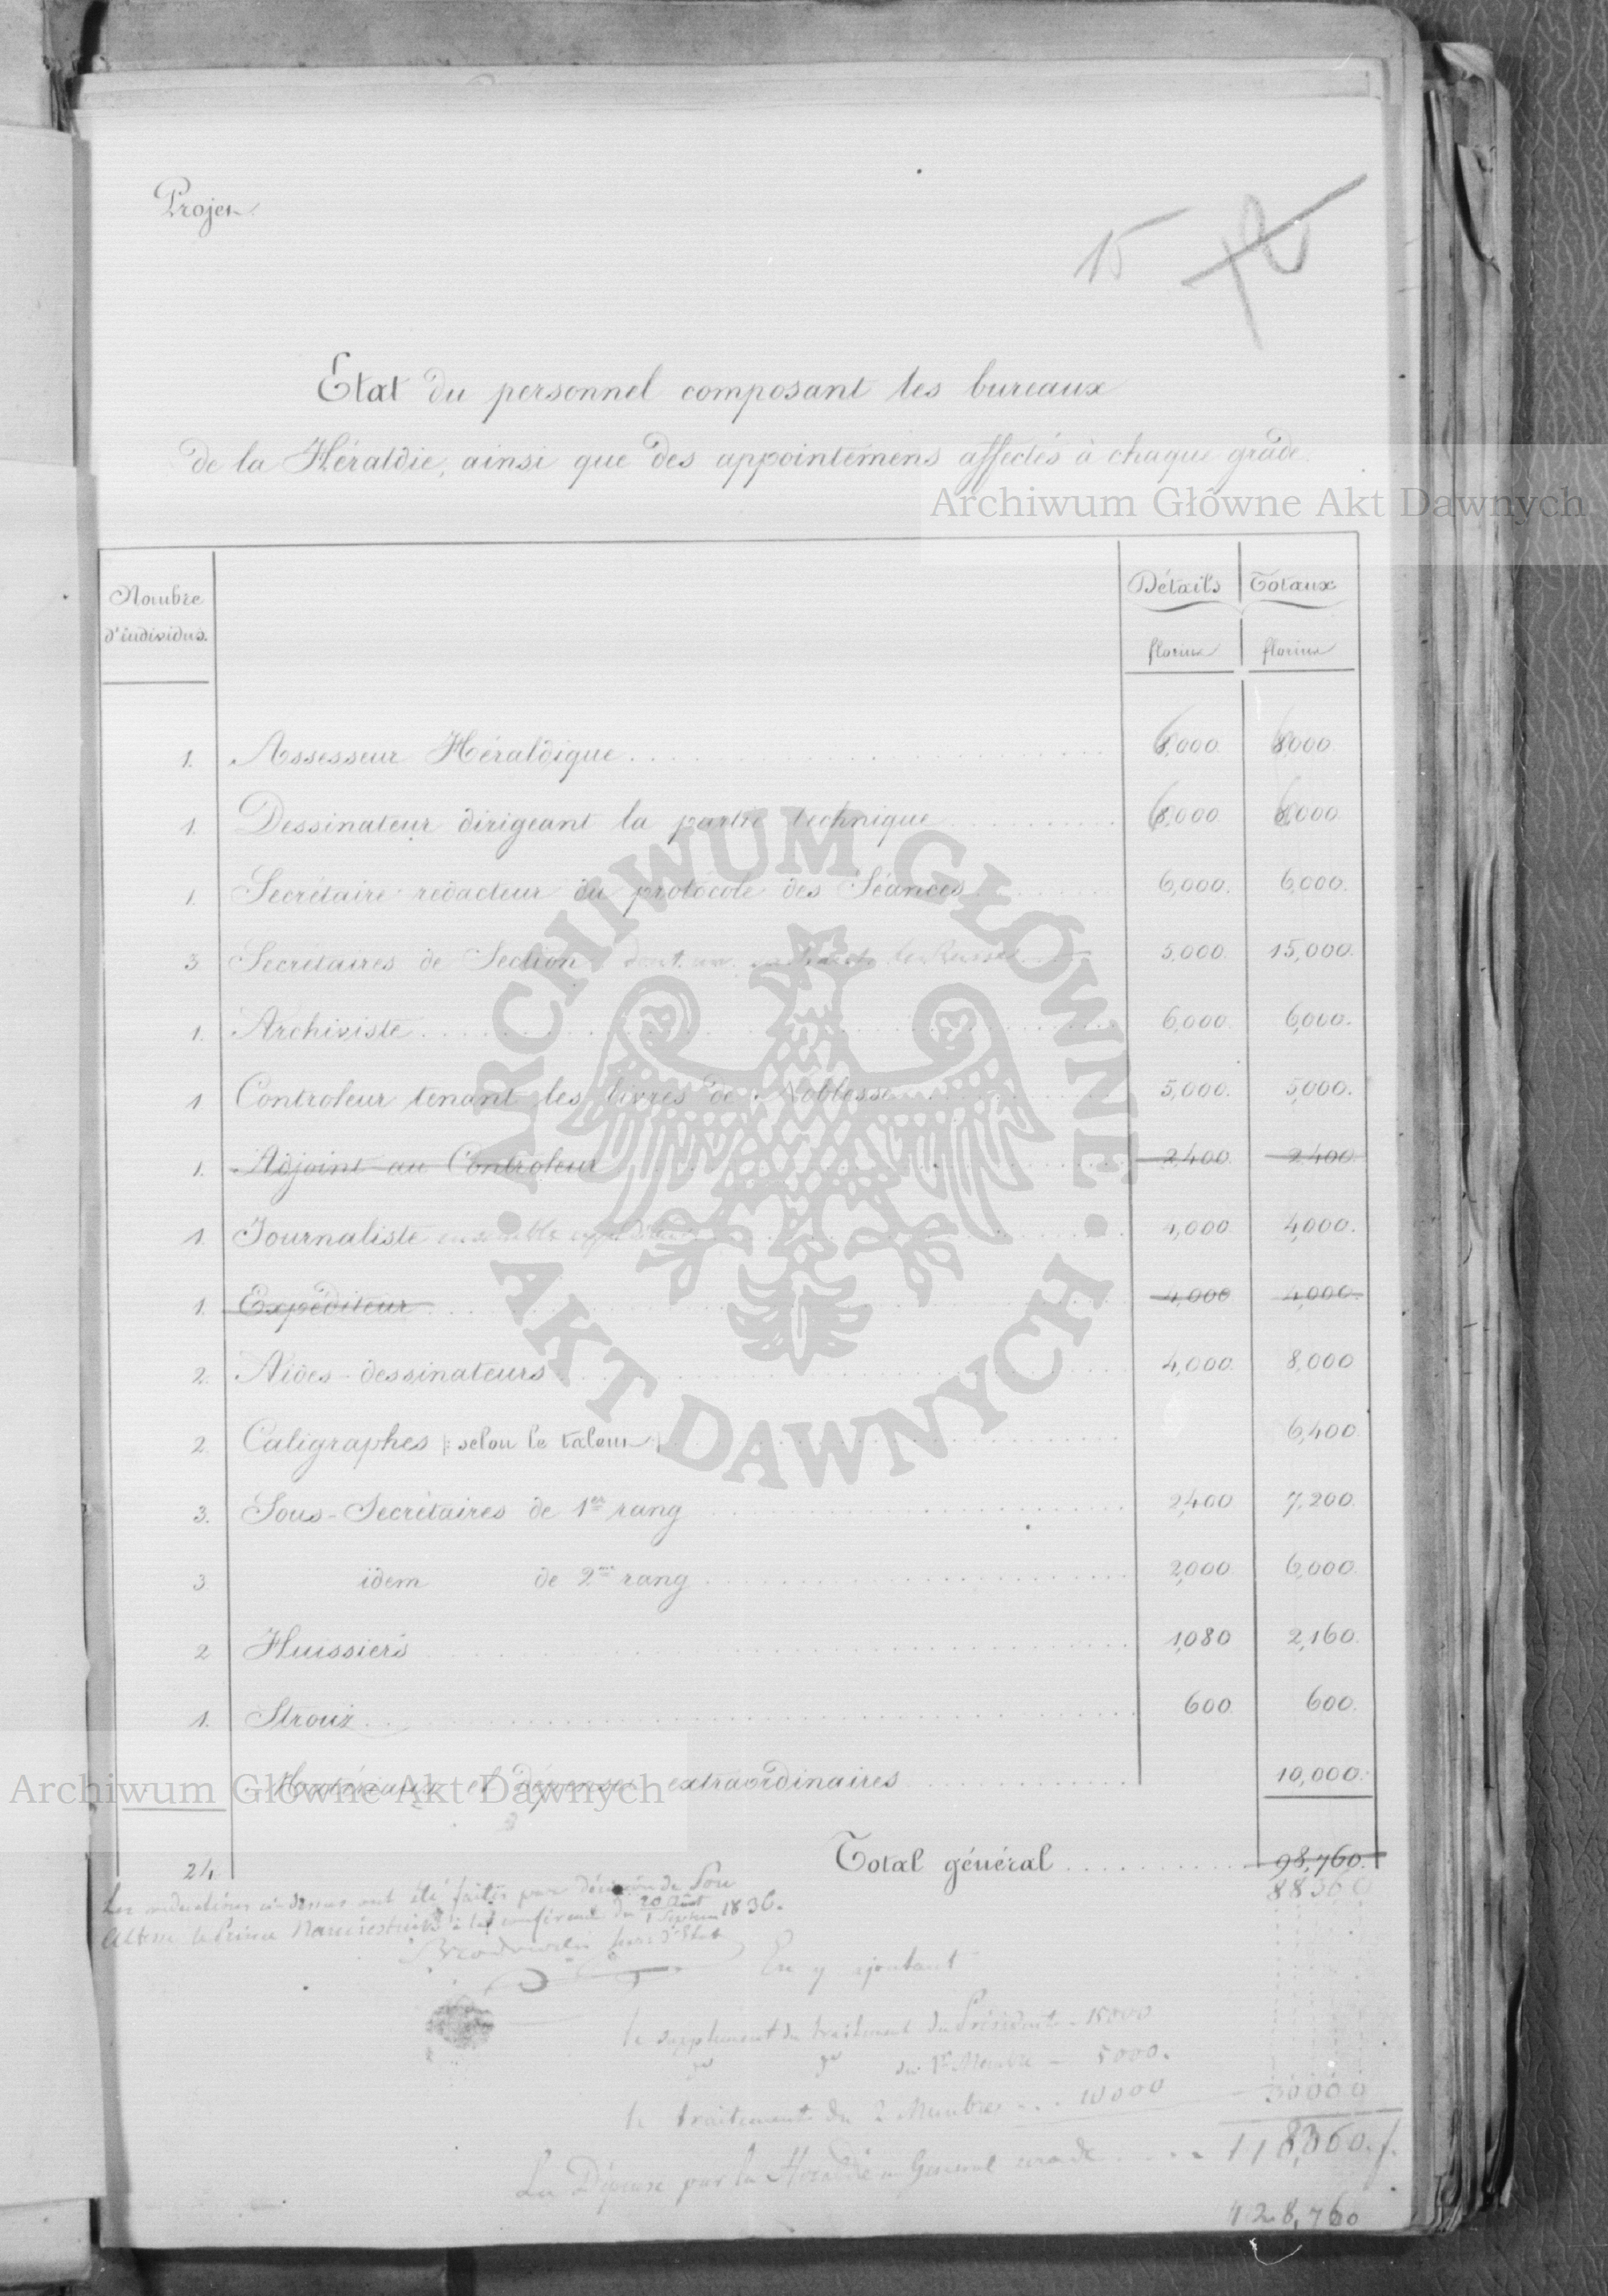 Projet
15
Etat du personnel composant les bureaux
de la Héraldie, ainsi que des appointemens affectés à chaque grade.
Archiwum Główne Akt Dawnych
Nombre d'individus. Détails florins Totaux florins
1. Assesseur Héraldique 6,000 6,000
1. Dessinateur dirigeant la partie technique 6,000 6,000
1. Secrétaire rédacteur du protocole des Séances 6,000. 6,000.
3 Secrétaires de Section dont un le Russe 5,000. 15,000.
1. Archiviste 6,000. 6,000.
1 Controleur tenant les livres de Noblesse 5,000. 5,000.
1. Adjoint au Controleur 2,400 2,400
1. Journaliste ensemble expéditeur 4,000 4,000.
1. Expéditeur 4,000 4,000.
2. Aides-dessinateurs 4,000. 8,000
2. Caligraphes |: selon le talent :| 6,400
3. Sous-Secrétaires de 1er rang 2,400 7,200.
3 idem de 2me rang 2,000 6,000
2 Huissiers 1,080 2,160.
1. Stroux 600 600.
Matériaux et dépenses extraordinaires 10,000.
Archiwum Główne Akt Dawnych
24 Total général 98,760.
88360
Les réductions ci-dessus ont été faites par décision de Son
Altesse le Prince Namiestnik à la conférence du 20 Août 1 Septem 1836.
En y ajoutant
le supplement du traitement du Président - 15000
do do du 1r Membre - 5000.
le traitement du 2 Membres 10000 30000
La Dépense pour la Heraldie en General 118,360.f.
128,760
ARCHIWUM GŁÓWNE • AKT DAWNYCH •